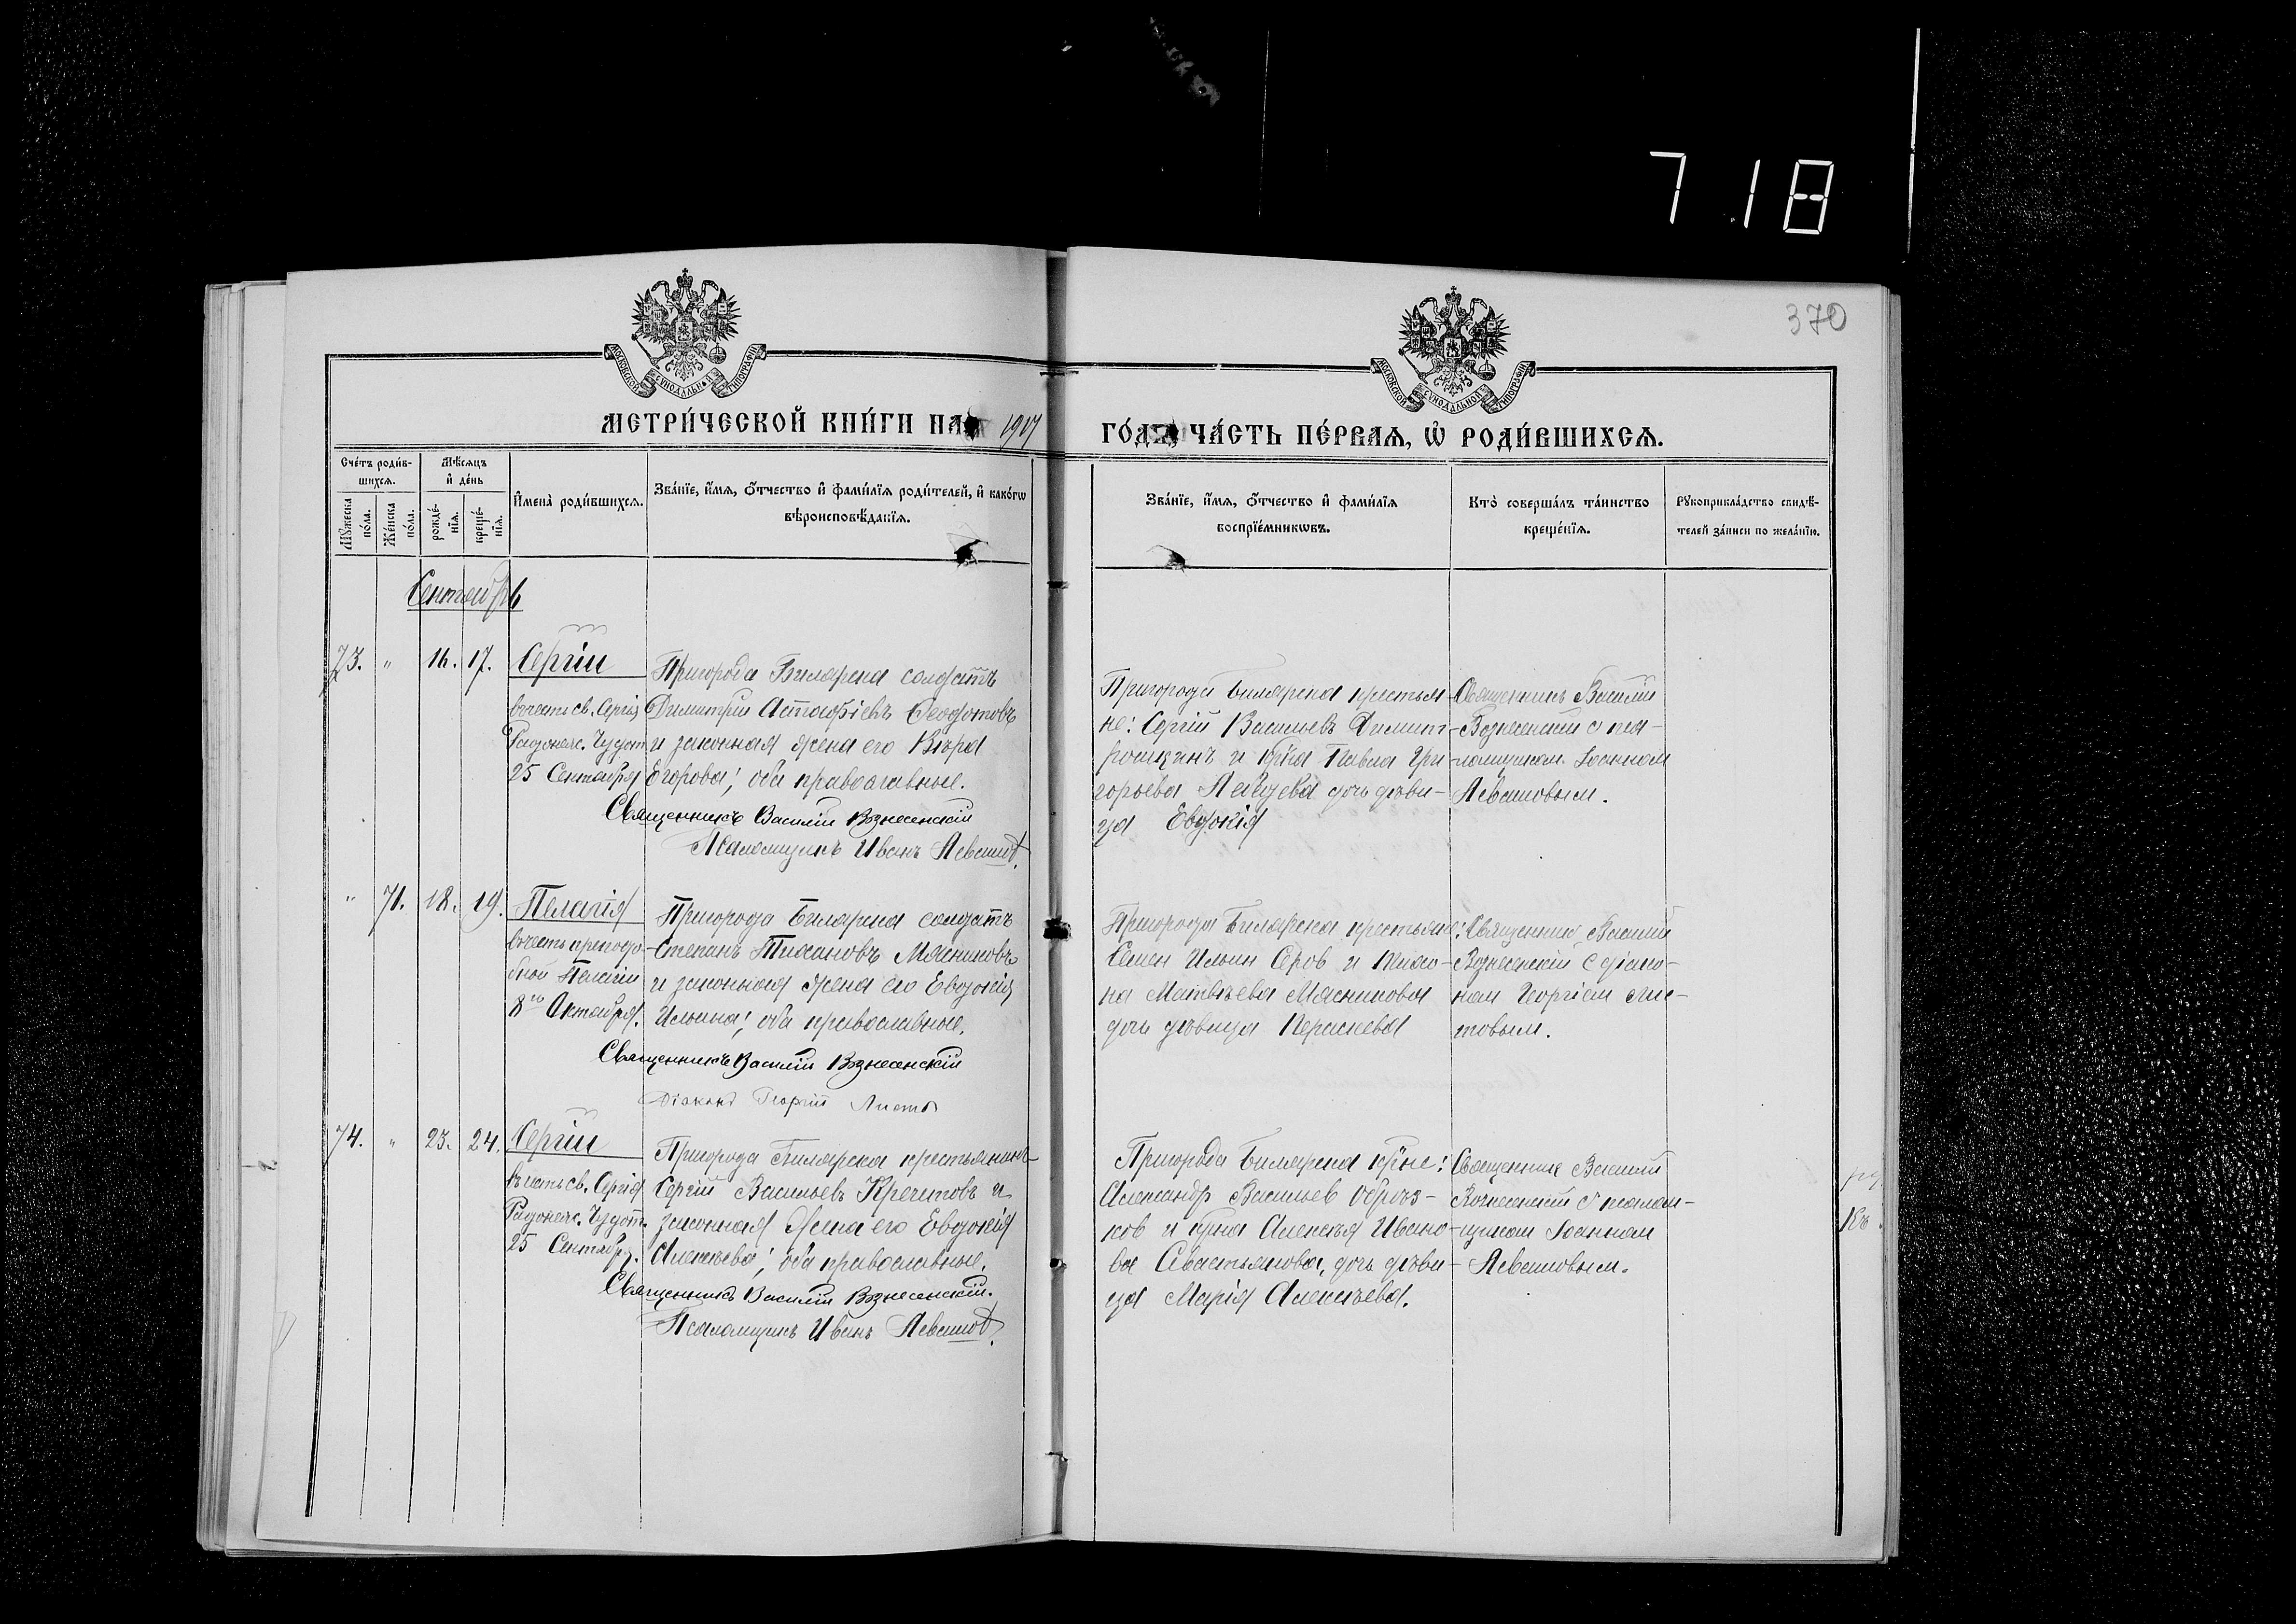 718
370
МОСКОВСКОЙ СУНОДАЛЬНОЙ ТИПОГРАФІИ
МОСКОВСКОЙ СУНОДАЛЬНОЙ ТИПОГРАФІИ
МЕТРИ́ЧЕСКОЙ КНИ́ГИ НА 1917
ГО́ДЪ, ЧА́СТЬ ПЕ́РВАѦ, Ѡ҆ РОДИ́ВШИХСѦ.
Сче́тъ роди́в-
шихсѧ.
Мꙋ́жеска по́ла.
Же́нска по́ла.
Мѣ́сѧцъ
и҆ де́нь
рожде́-нїѧ.
креще́-нїѧ.
И҆мена̀ роди́вшихсѧ.
Зва́нїе, и҆́мѧ, ѻ҆́тчество и҆ фами́лїѧ роди́телей, и҆ како́гѡ
вѣроисповѣ́данїѧ.
Зва́нїе, и҆́мѧ, ѻ҆́тчество и҆ фами́лїѧ
воспрїе́мникѡвъ.
Кто̀ соверша́лъ та́инство
креще́нїѧ.
Рꙋкоприкла́дство свидѣ́-
телей за́писи по жела́нїю.
Сентябрь
73. " 16. 17. Сергій
въ честь св. Сергія
Радонеж. Чудотв.
25 Сентября
Пригорода Билярска солдатъ
Димитрій Астафіевъ Ѳеодотовъ
и законная жена его Вѣра
Егорова; оба православные.
Священникъ Василій Вознесенскій
Псаломщикъ Иванъ Левашов
Пригорода Билярска крестья-
не: Сергій Васильевъ Димит-
рошкинъ и кр-на Павла Гри-
горьева дочь дѣви-
ца Евдокія
Священникъ Василій
Вознесенский с пса-
ломщиком Іоанном
Левашовым.
" 71. 18. 19. Пелагія
въ честь преподо-
бной Пелагіи
8го Октября.
Пригорода Билярска солдатъ
Степанъ Тихановъ Мясниковъ
и законная жена его Евдокія
Ильина; оба православные.
Священникъ Василій Вознесенскій
Діаконъ Георгій Листов
Пригорода Билярска крестьяне:
Семен Ильин Серов и Тихо-
на Матвѣева Мясникова
дочь дѣвица Параскева
Священник Василий
Вознесенский с діако-
ном Георгіем Лис-
товым.
74. " 23. 24. Сергій
въ честь св. Сергія
Радонеж. Чудотв.
25 Сентября.
Пригорода Билярска крестьянинъ
Сергій Васильевъ Кречетовъ и
законная жена его Евдокія
Алексѣева; оба православные.
Священникъ Василій Вознесенскій.
Псаломщикъ Иванъ Левашов
Пригорода Билярска кр-не:
Александр Васильев Обрез-
ков и кр-на Алексѣя Ивано-
ва Севастьянова, дочь дѣви-
ца Марія Алексѣева.
Священник Василий
Вознесенский с псалом-
щиком Іоанном
Левашовым.